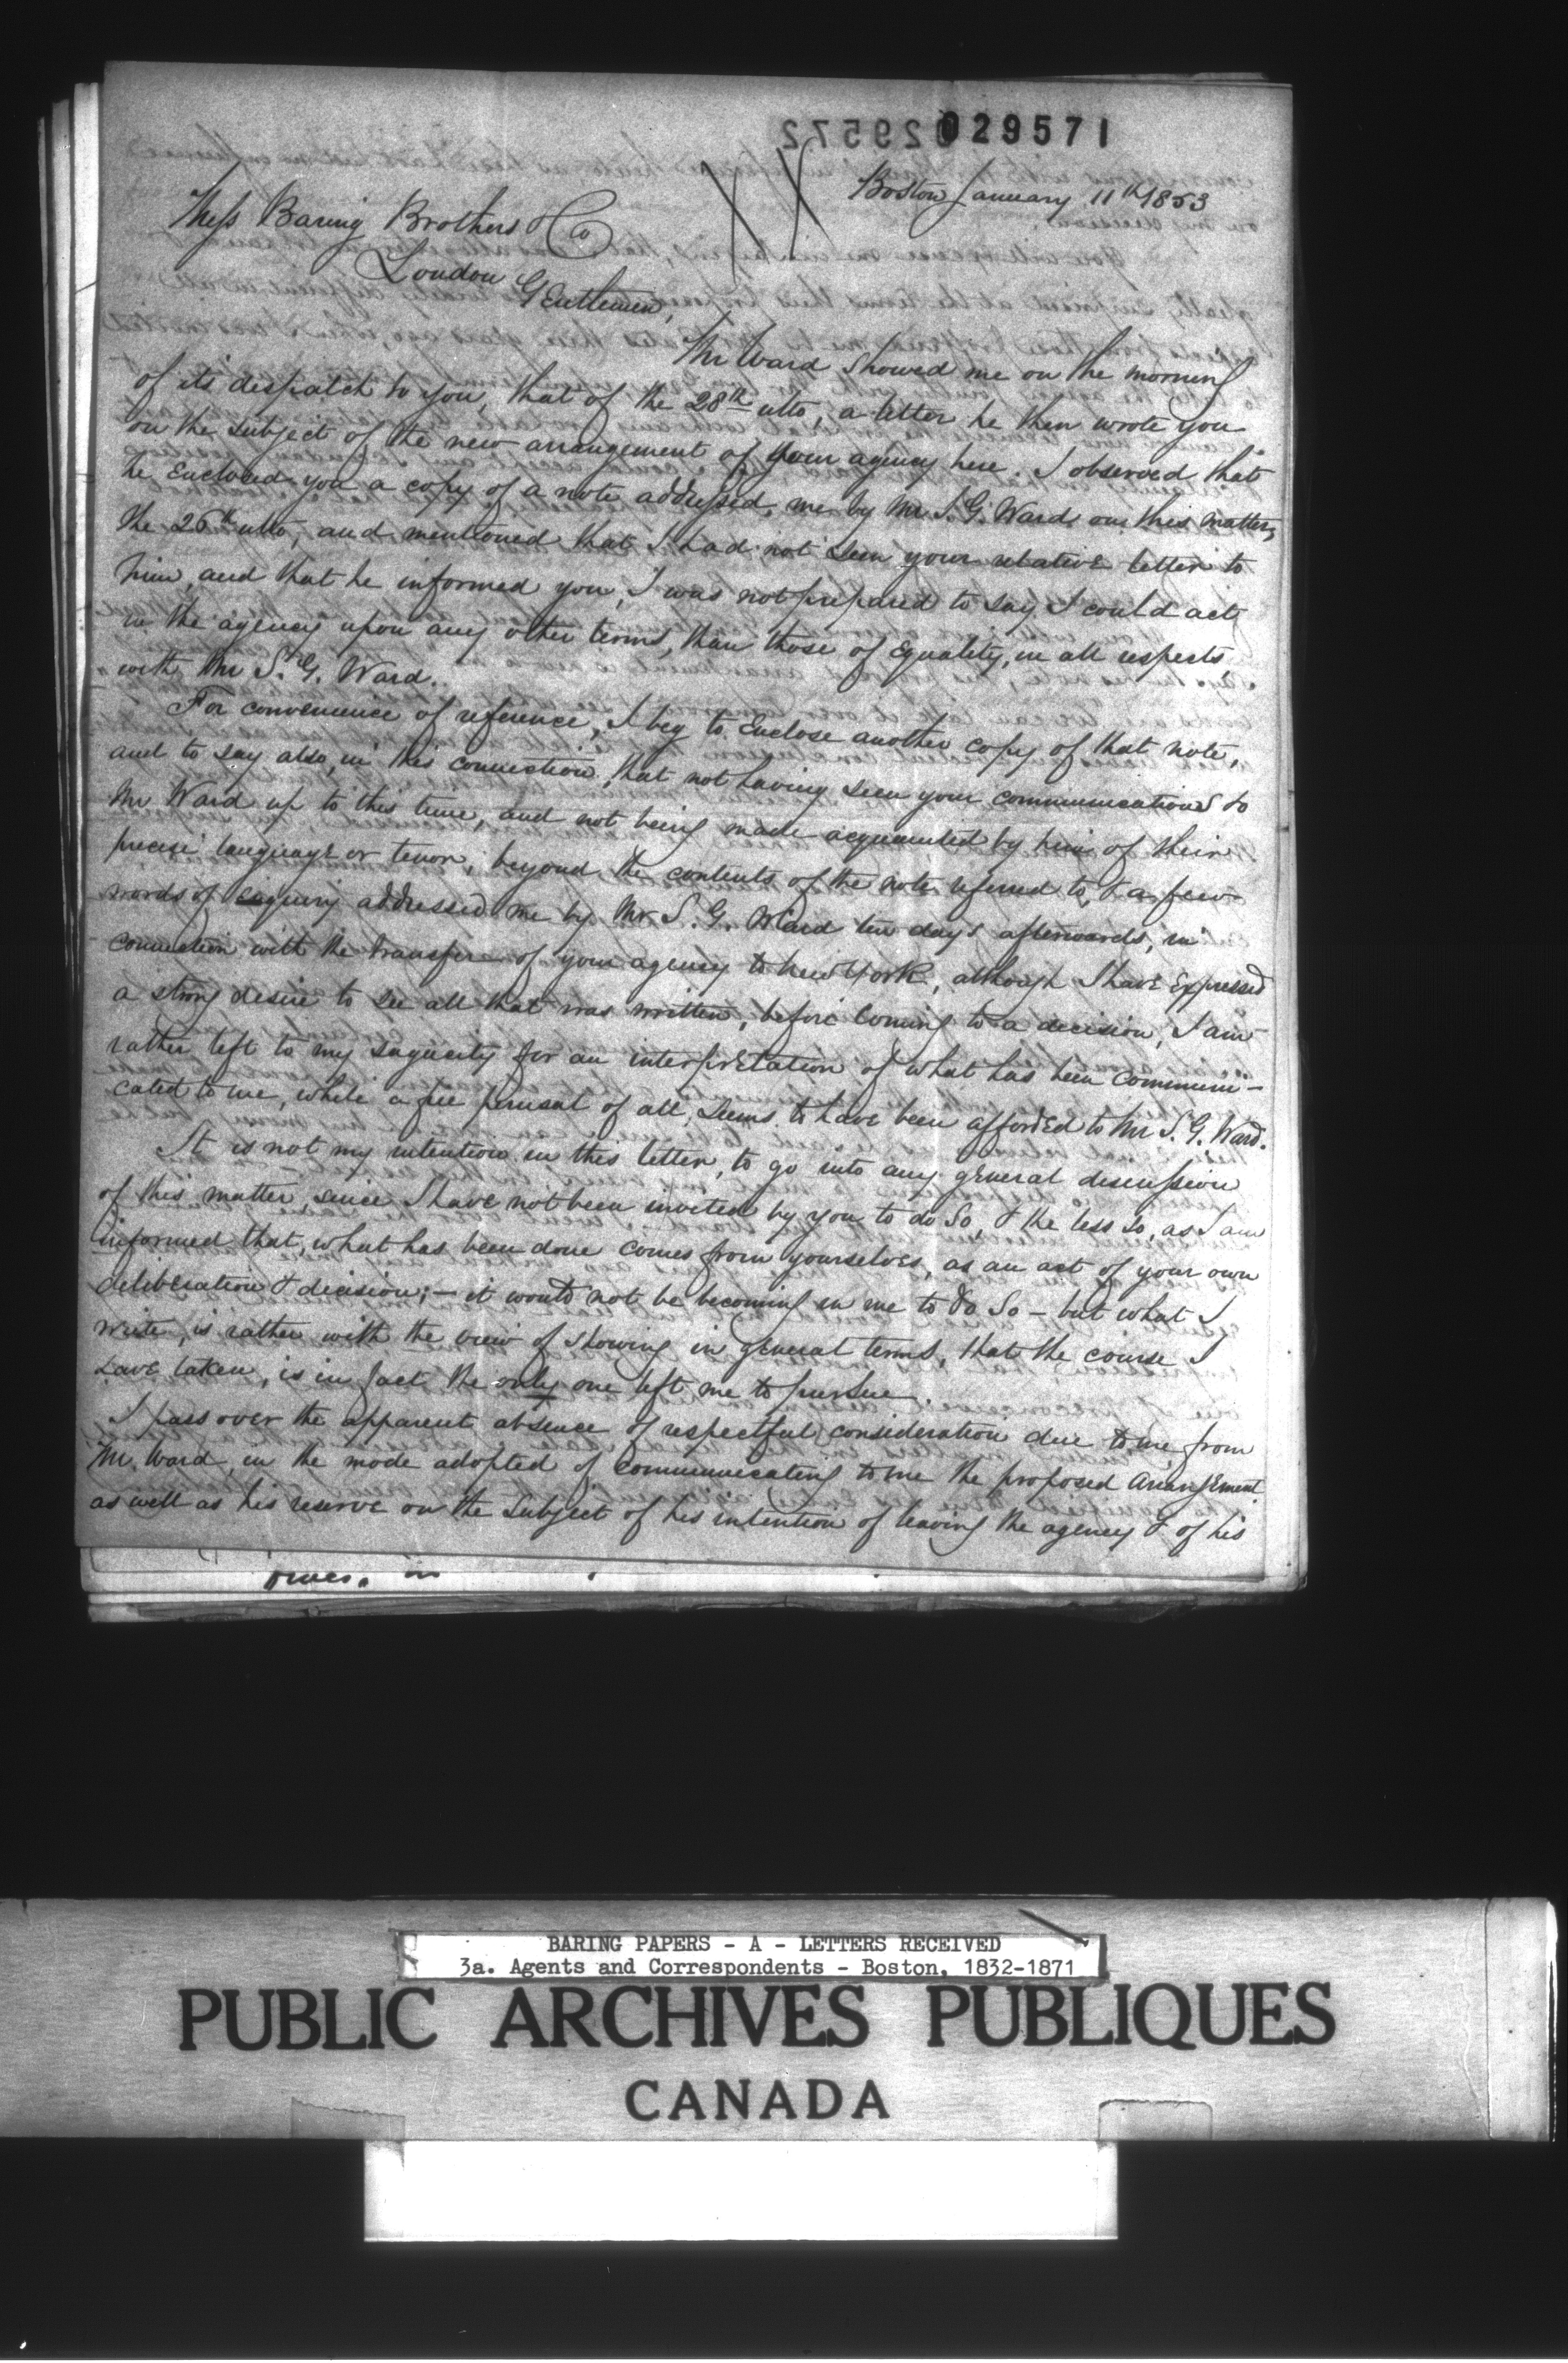 029571
Boston January 11th 1853
Mess Baring Brothers & Co
London
Gentlemen,
Mr Ward showed me on the morning
of its despatch to you, that of the 28th ulto, a letter he then wrote you
on the subject of the new arrangement of your agency here. I observed that
he enclosed you a copy of a note addressed me by Mr S. G. Ward on this matter,
the 26th ulto, and mentioned that I had not seen your relative letter to
him, and that he informed you, I was not prepared to say I could act
in the agency upon any other terms, than those of Equality, in all respects,
with Mr S. G. Ward.
For convenience of reference, I beg to Enclose another copy of that note,
and to say also, in this connection, that not having seen your communications to
Mr Ward up to this time, and not being made acquainted by him of their
precise language or tenor, beyond the contents of the note referred to, & a few
words of enquiry addressed me by Mr S. G. Ward ten days afterwards, in
connection with the transfer of your agency to New York, although I have Expressed
a strong desire to see all that was written, before coming to a decision, I am
rather left to my sagacity for an interpretation of what has been communi-
cated to me, while a free perusal of all, seems to have been afforded to Mr S. G. Ward.
It is not my intention in this letter, to go into any general discussion
of this matter since I have not been invited by you to do so, & the less so, as I am
informed that, what has been done comes from yourselves, as an act of your own
deliberation & decision; – it would not be becoming in me to do so – but what I
write, is rather with the view of showing in general terms, that the course I
have taken, is in fact the only one left me to pursue.
I pass over the apparent absence of respectful consideration due to me, from
Mr. Ward, in the mode adopted of communicating to me the proposed arrangement
as well as his reserve on the subject of his intention of leaving the agency & of his
BARING PAPERS - A - LETTERS RECEIVED
3a. Agents and Correspondents - Boston, 1832-1871
PUBLIC ARCHIVES PUBLIQUES
CANADA